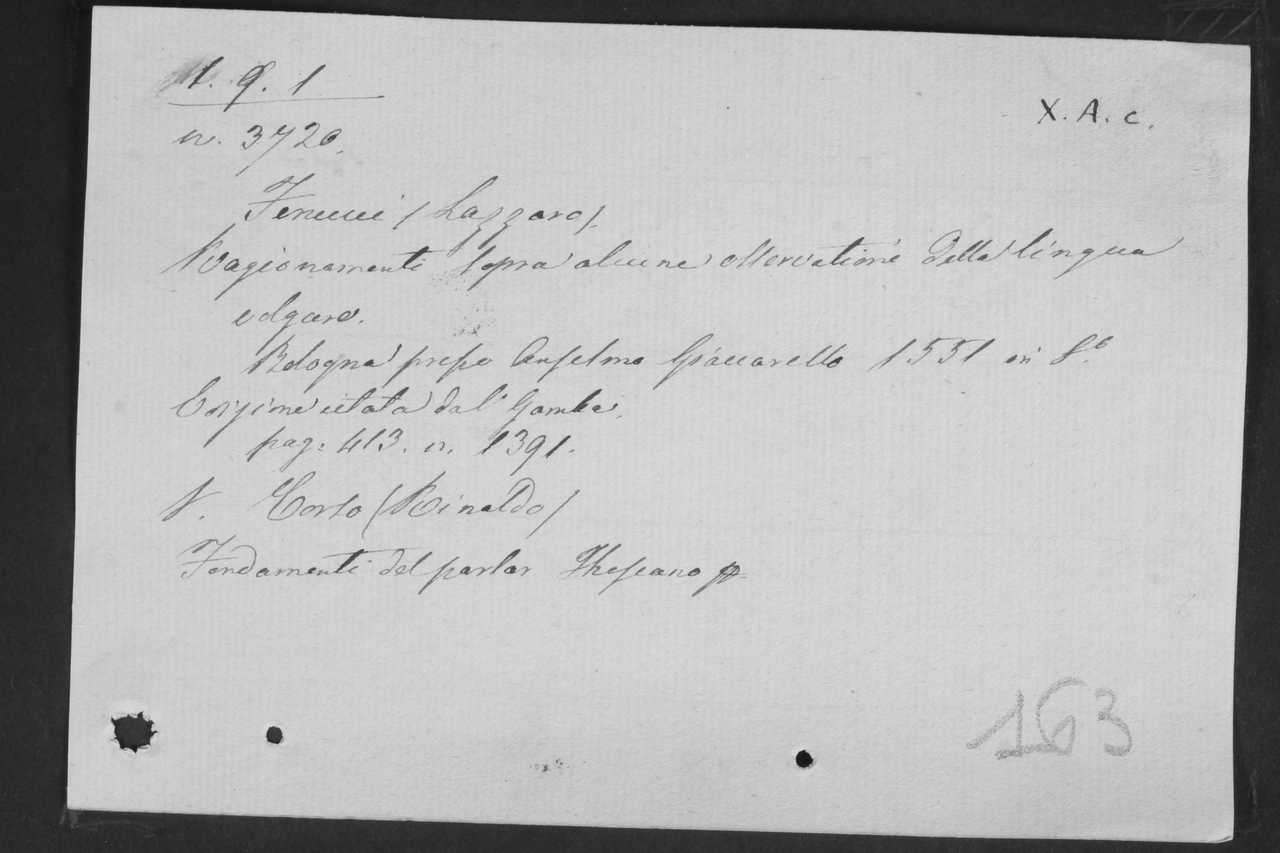 1. 9. 1
X. A. c.
n. 3720.
Fenucci (Lazzaro).
Ragionamenti sopra alcune osservationi della lingua
volgare.
Bologna presso Anselmo Giaccarello 1551 in 8.º
Edizione citata dal Gamba.
pag: 413. n. 1391.
V. Corso (Rinaldo)
Fondamenti del parlar Thoscano
163